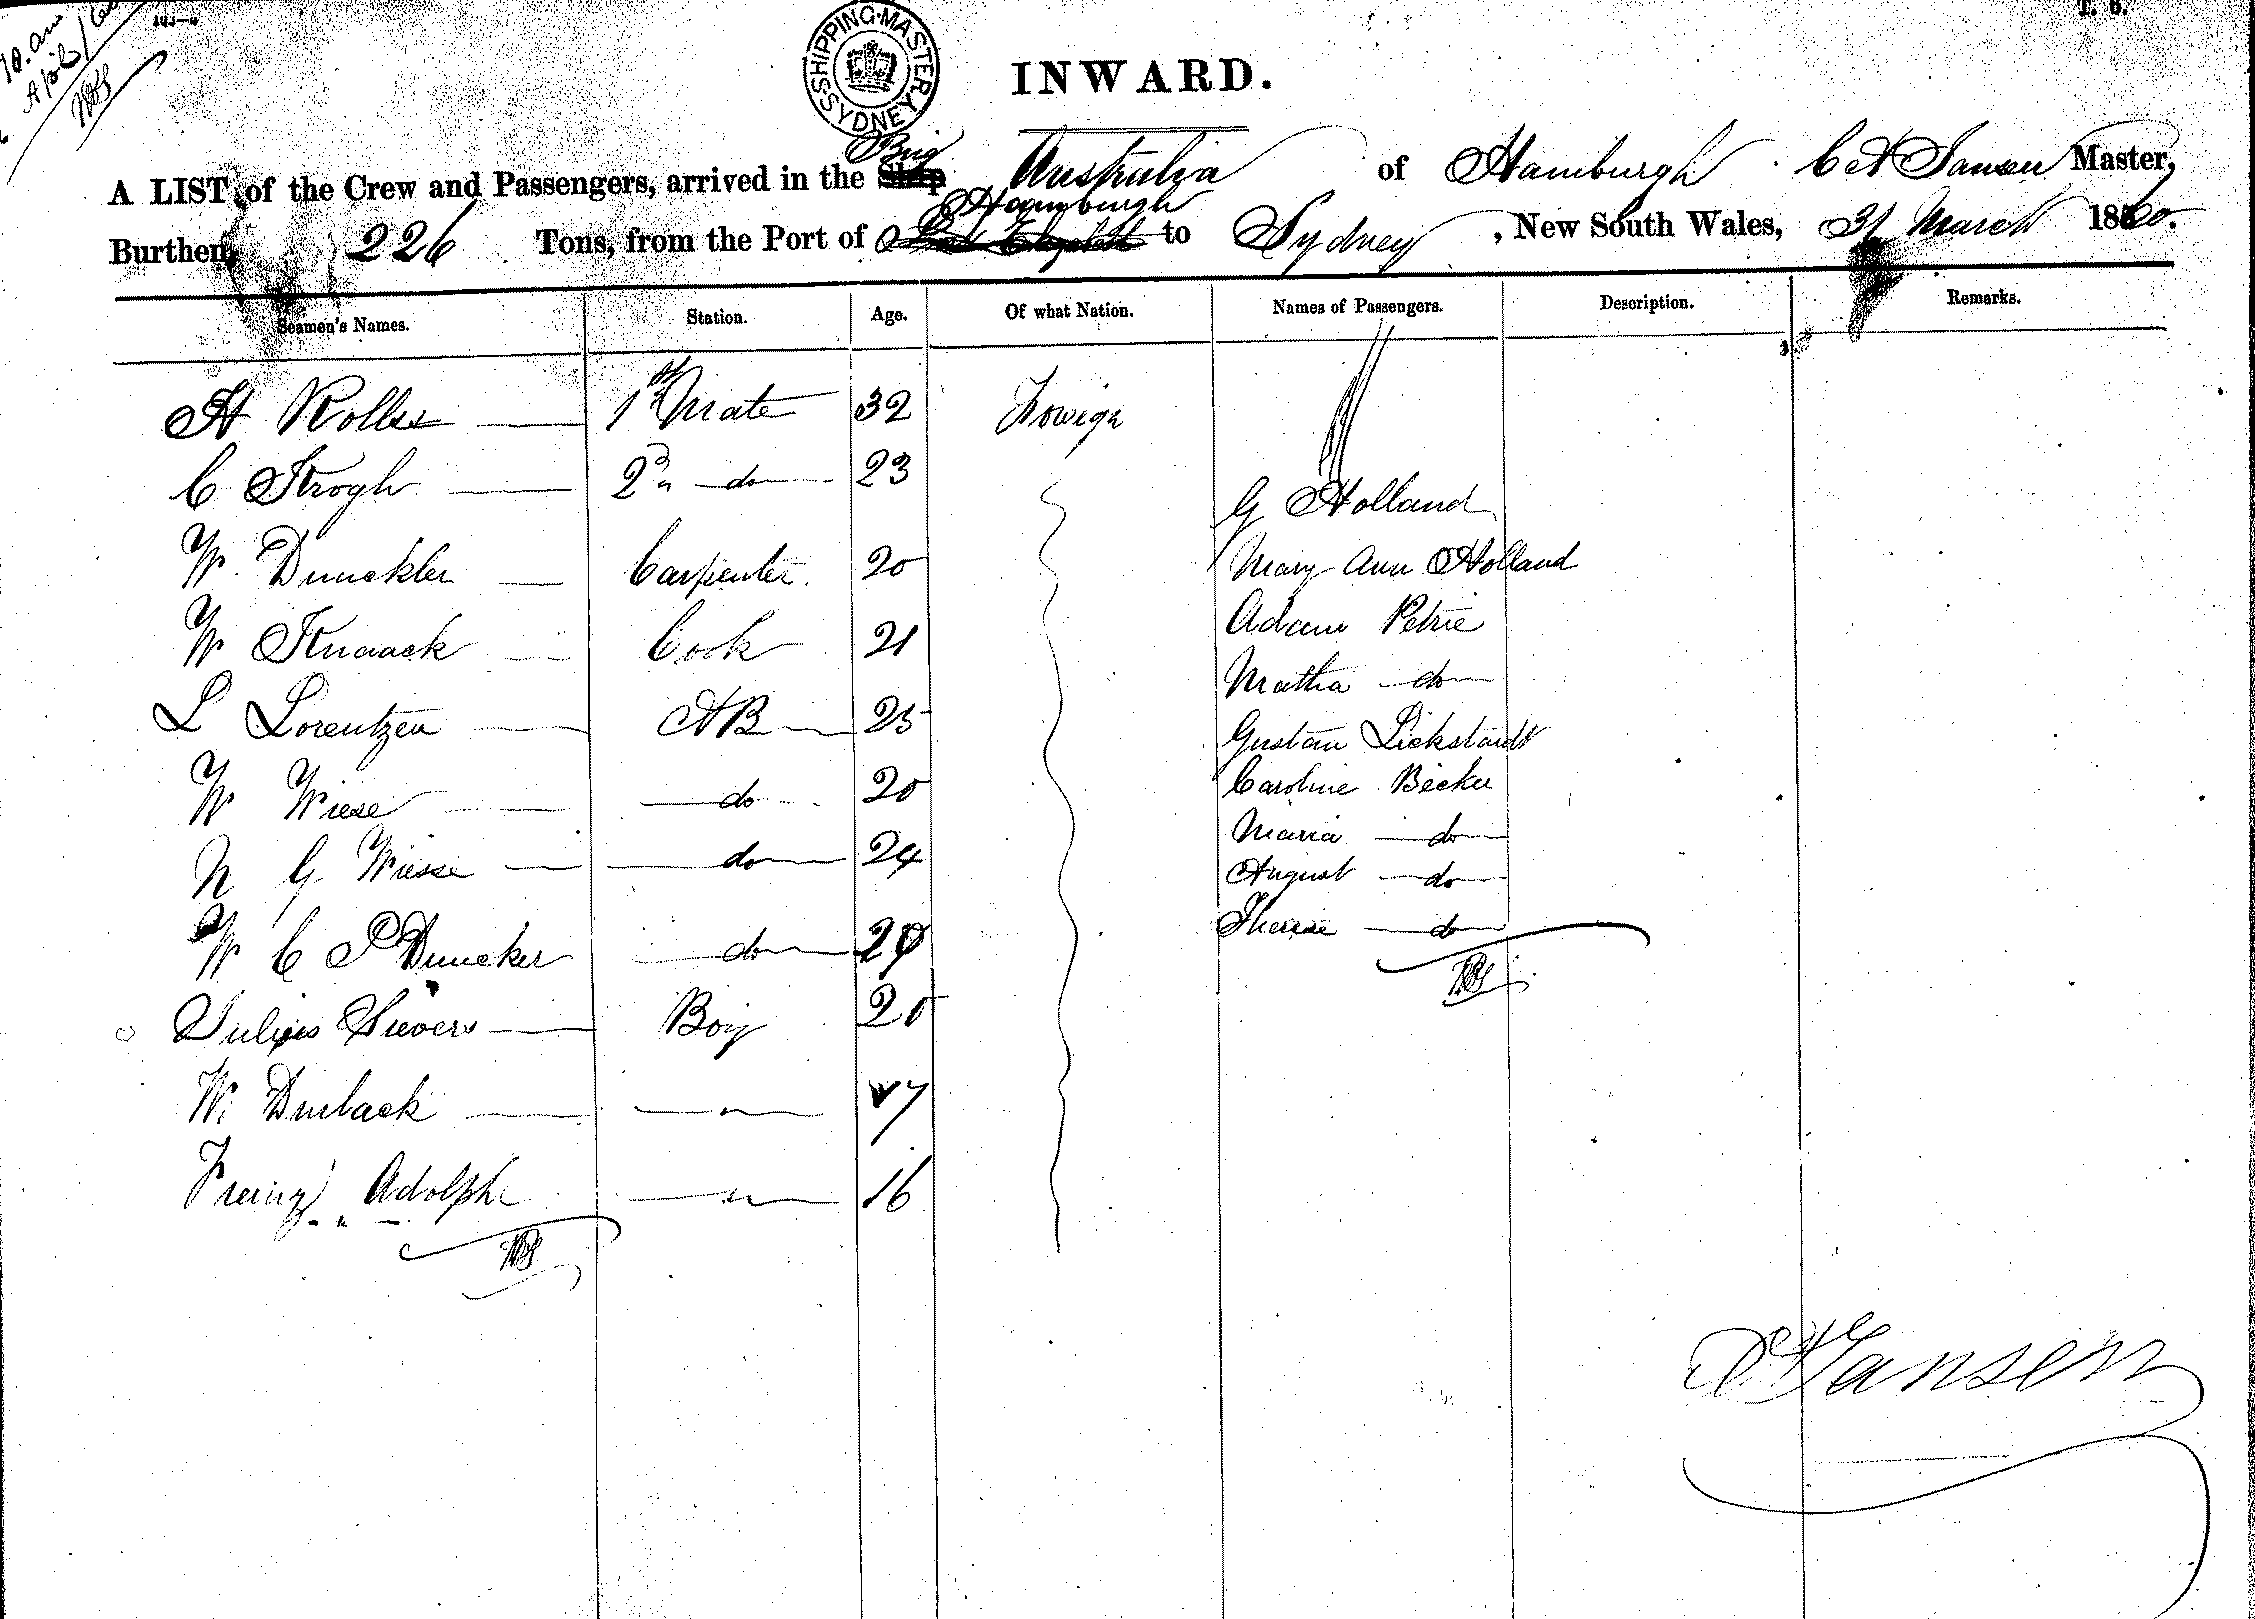 10. am
April /60
T. 6.
SHIPPING·MASTER SYDNEY
INWARD.
Brig
A LIST of the Crew and Passengers, arrived in the Ship Australia of Hamburgh C A Jansen Master,
Hamburgh
Burthen, 226 Tons, from the Port of Port Elizabeth to Sydney, New South Wales, 31 March 1860.
Seamen's Names. Station. Age. Of what Nation. Names of Passengers. Description. Remarks.
A Rolles 1st Mate 32 Foreign
C Krogh 2nd do 23 G Holland
W Dunckler Carpenter 20 Mary Ann Holland
W Knaack Cook 21 Adam Petrie
L Lorentzen AB 25 Martha do
W Wiese do 20 Gustav Lickstardt
Caroline Becker
N G Wiesse do 24 Maria do
August do
W C P Duncker do 24 Therese do
Julius Sievers Boy 20
W. Durlack " 17
Adolph " 16
Jansen